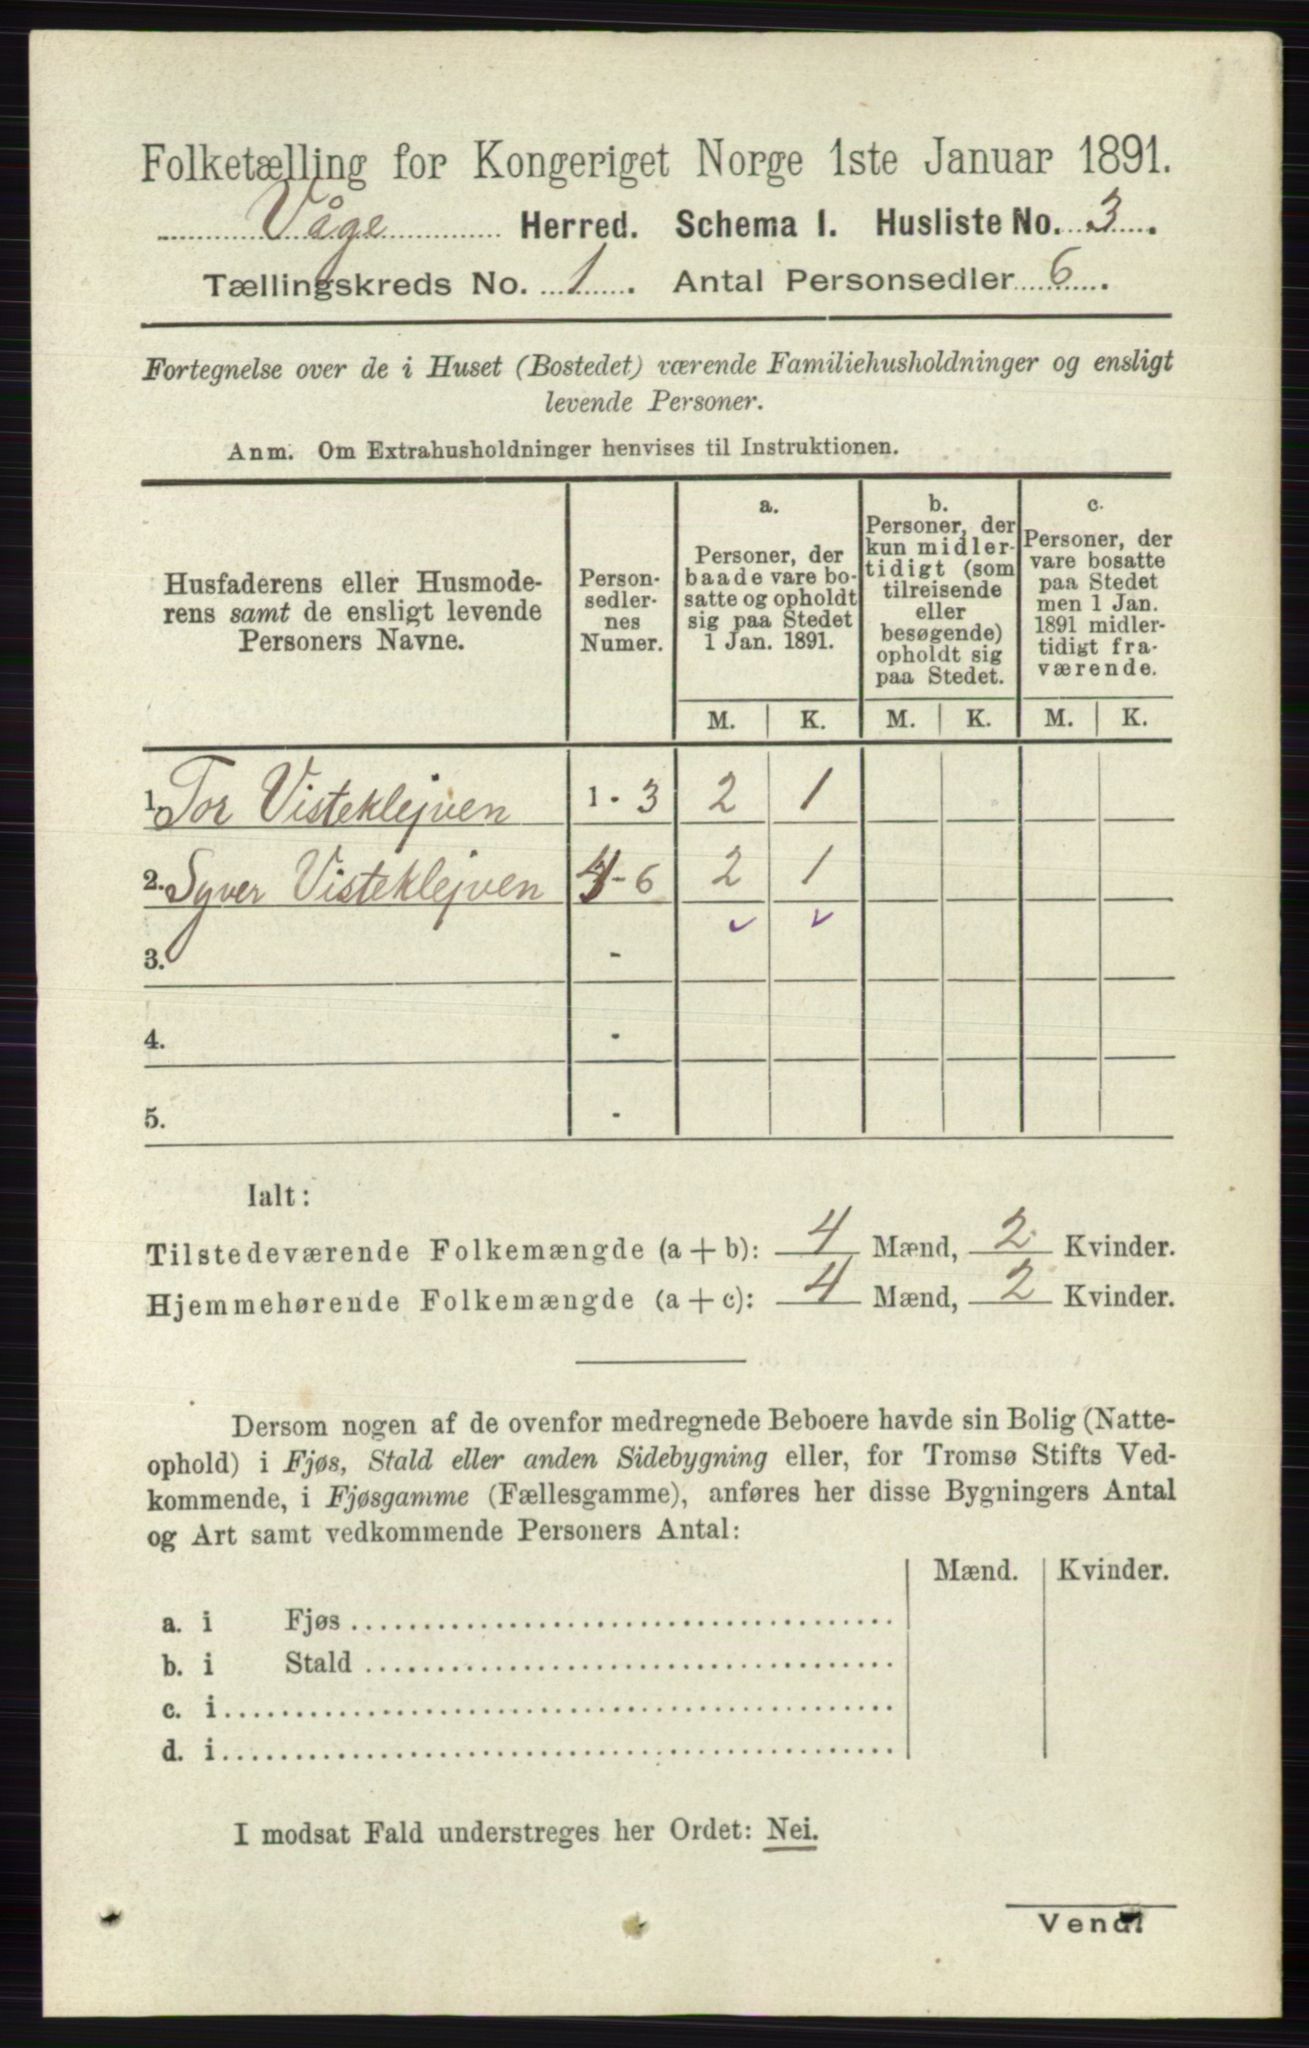 Folketælling for Kongeriget Norge 1ste Januar 1891.
Våge Herred. Schema I. Husliste No. 3.
Tællingskreds No. 1. Antal Personsedler 6.
Fortegnelse over de i Huset (Bostedet) værende Familiehusholdninger og ensligt
levende Personer.
Anm. Om Extrahusholdninger henvises til Instruktionen.
Husfaderens eller Husmode-
rens samt de ensligt levende
Personers Navne.
Person-
sedler-
nes
Numer.
a.
Personer, der
baade vare bo-
satte og opholdt
sig paa Stedet
1 Jan. 1891.
b.
Personer, der
kun midler-
tidigt (som
tilreisende
eller
besøgende)
opholdt sig
paa Stedet.
c.
Personer, der
vare bosatte
paa Stedet
men 1 Jan.
1891 midler-
tidigt fra-
værende.
M. K. M. K. M. K.
1. Tor Visteklejven 1 - 3 2 1
2. Syver Visteklejven 4 - 6 2 1
3. -
4. -
5. -
Ialt:
Tilstedeværende Folkemængde (a + b): 4 Mænd, 2 Kvinder.
Hjemmehørende Folkemængde (a + c): 4 Mænd, 2 Kvinder.
Dersom nogen af de ovenfor medregnede Beboere havde sin Bolig (Natte-
ophold) i Fjøs, Stald eller anden Sidebygning eller, for Tromsø Stifts Ved-
kommende, i Fjøsgamme (Fællesgamme), anføres her disse Bygningers Antal
og Art samt vedkommende Personers Antal:
Mænd. Kvinder.
a. i Fjøs
b. i Stald
c. i
d. i
I modsat Fald understreges her Ordet: Nei.
Vend!